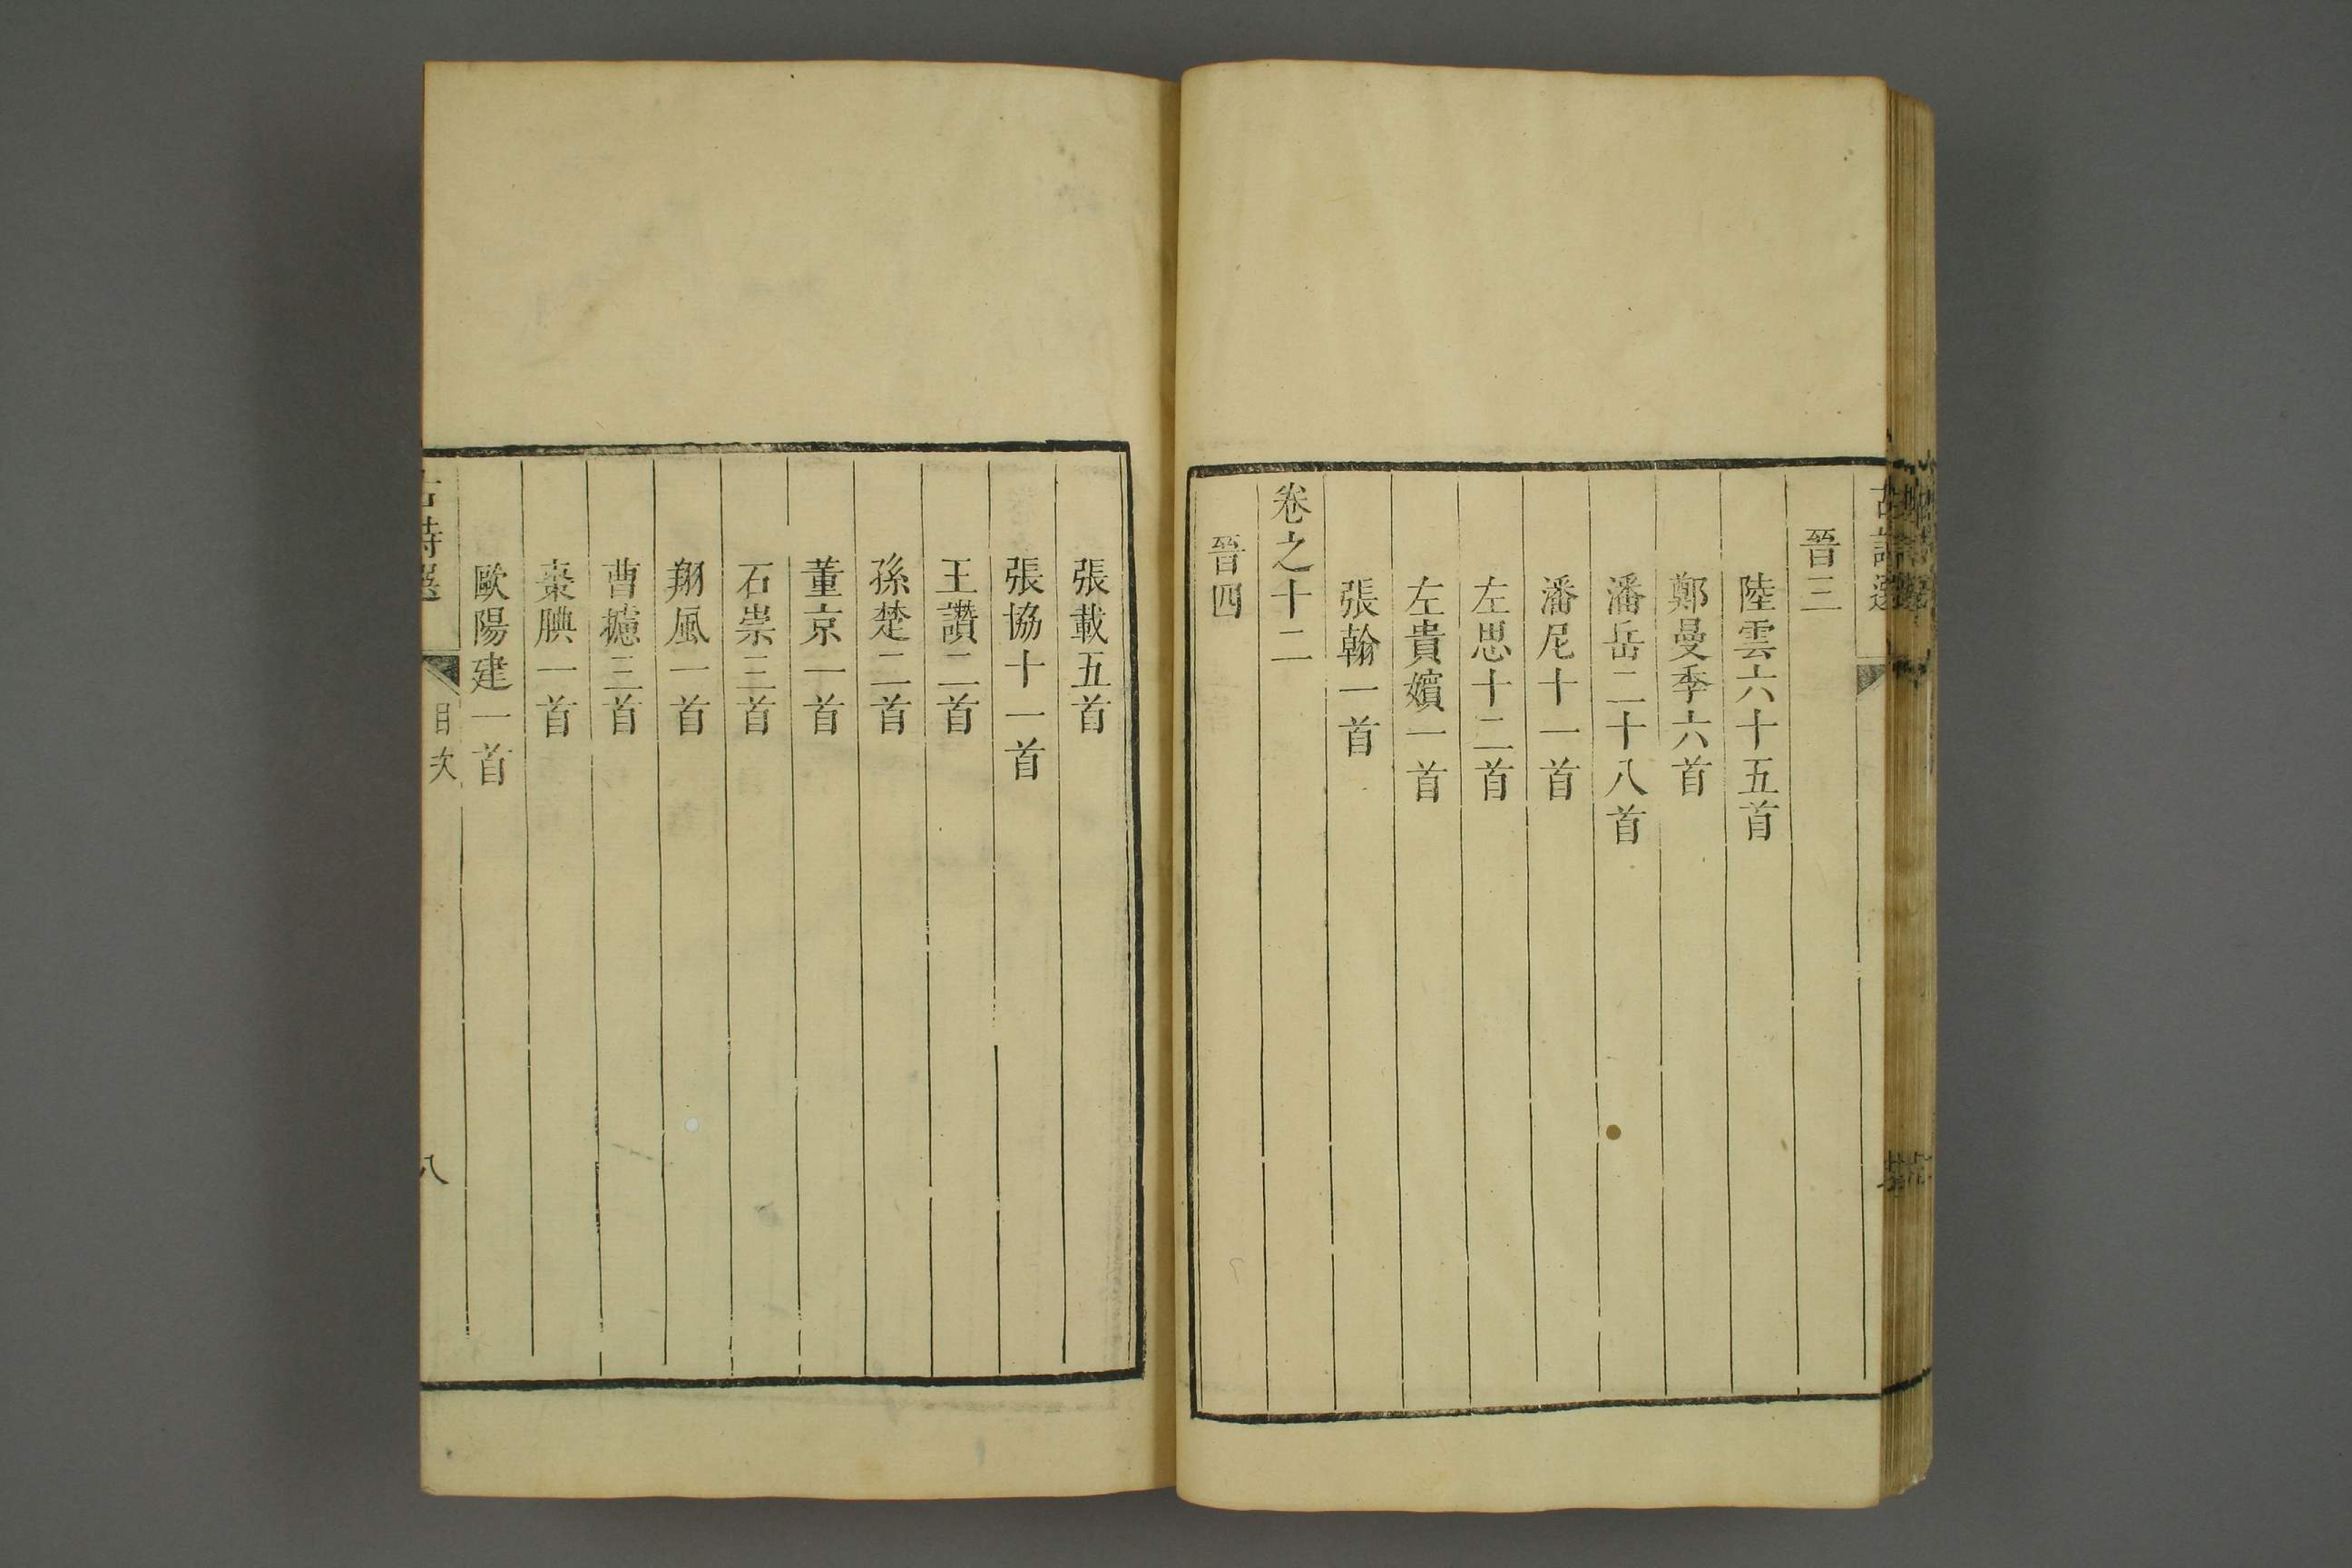 古詩選
晉三
陸雲六十五首
鄭曼季六首
潘岳二十八首
潘尼十一首
左思十二首
左貴嬪一首
張翰一首
卷之十二
晉四
張載五首
張協十一首
王讚二首
孫楚二首
董京一首
石崇三首
翔風一首
曹攄三首
棗腆一首
歐陽建一首
古詩選
目次
八